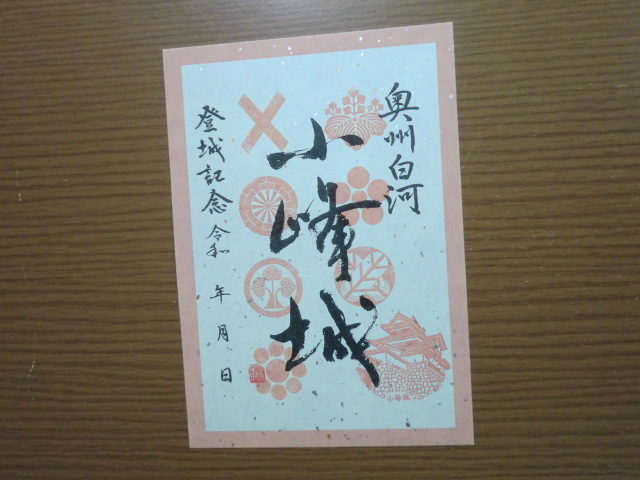 奥州白河
小峰城
登城記念令和 年 月 日
小峰城